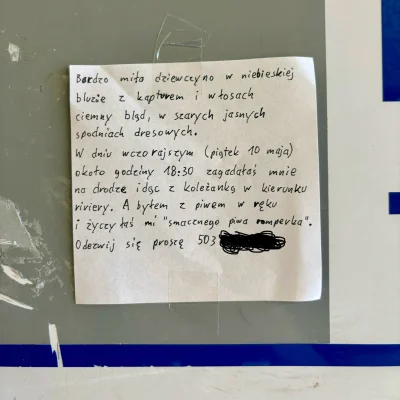 Bardzo miła dziewczyno w niebieskiej
bluzie z kapturem i włosach
ciemny bląd, w szarych jasnych
spodniach dresowych.
W dniu wczorajszym (piątek 10 maja)
około godziny 18:30 zagadałaś mnie
na drodze idąc z koleżanką w kierunku
riviery. A byłem z piwem w ręku
i życzyłaś mi "smacznego piwa romperka".
Odezwij się proszę 503